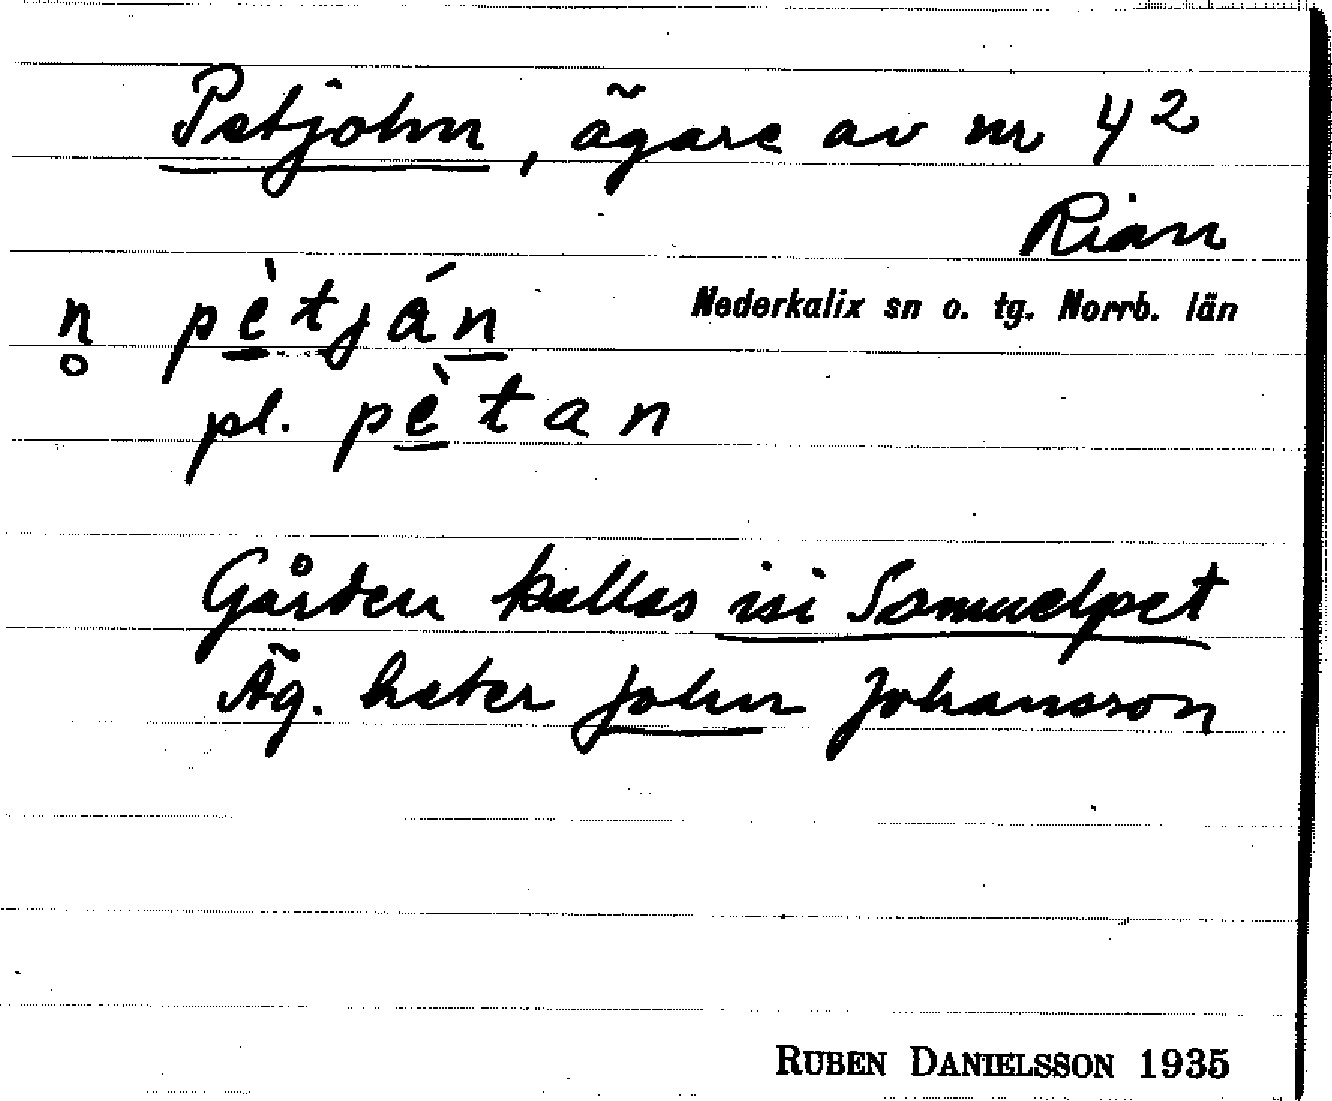 Petjohn, ägare av nr 4²
Rian
Nederkalix sn o. tg. Norrb. län
n̥ pètján
pl. pètan
Gården kallas isi Samuelpet
Äg. heter John Johansson
RUBEN DANIELSSON 1935